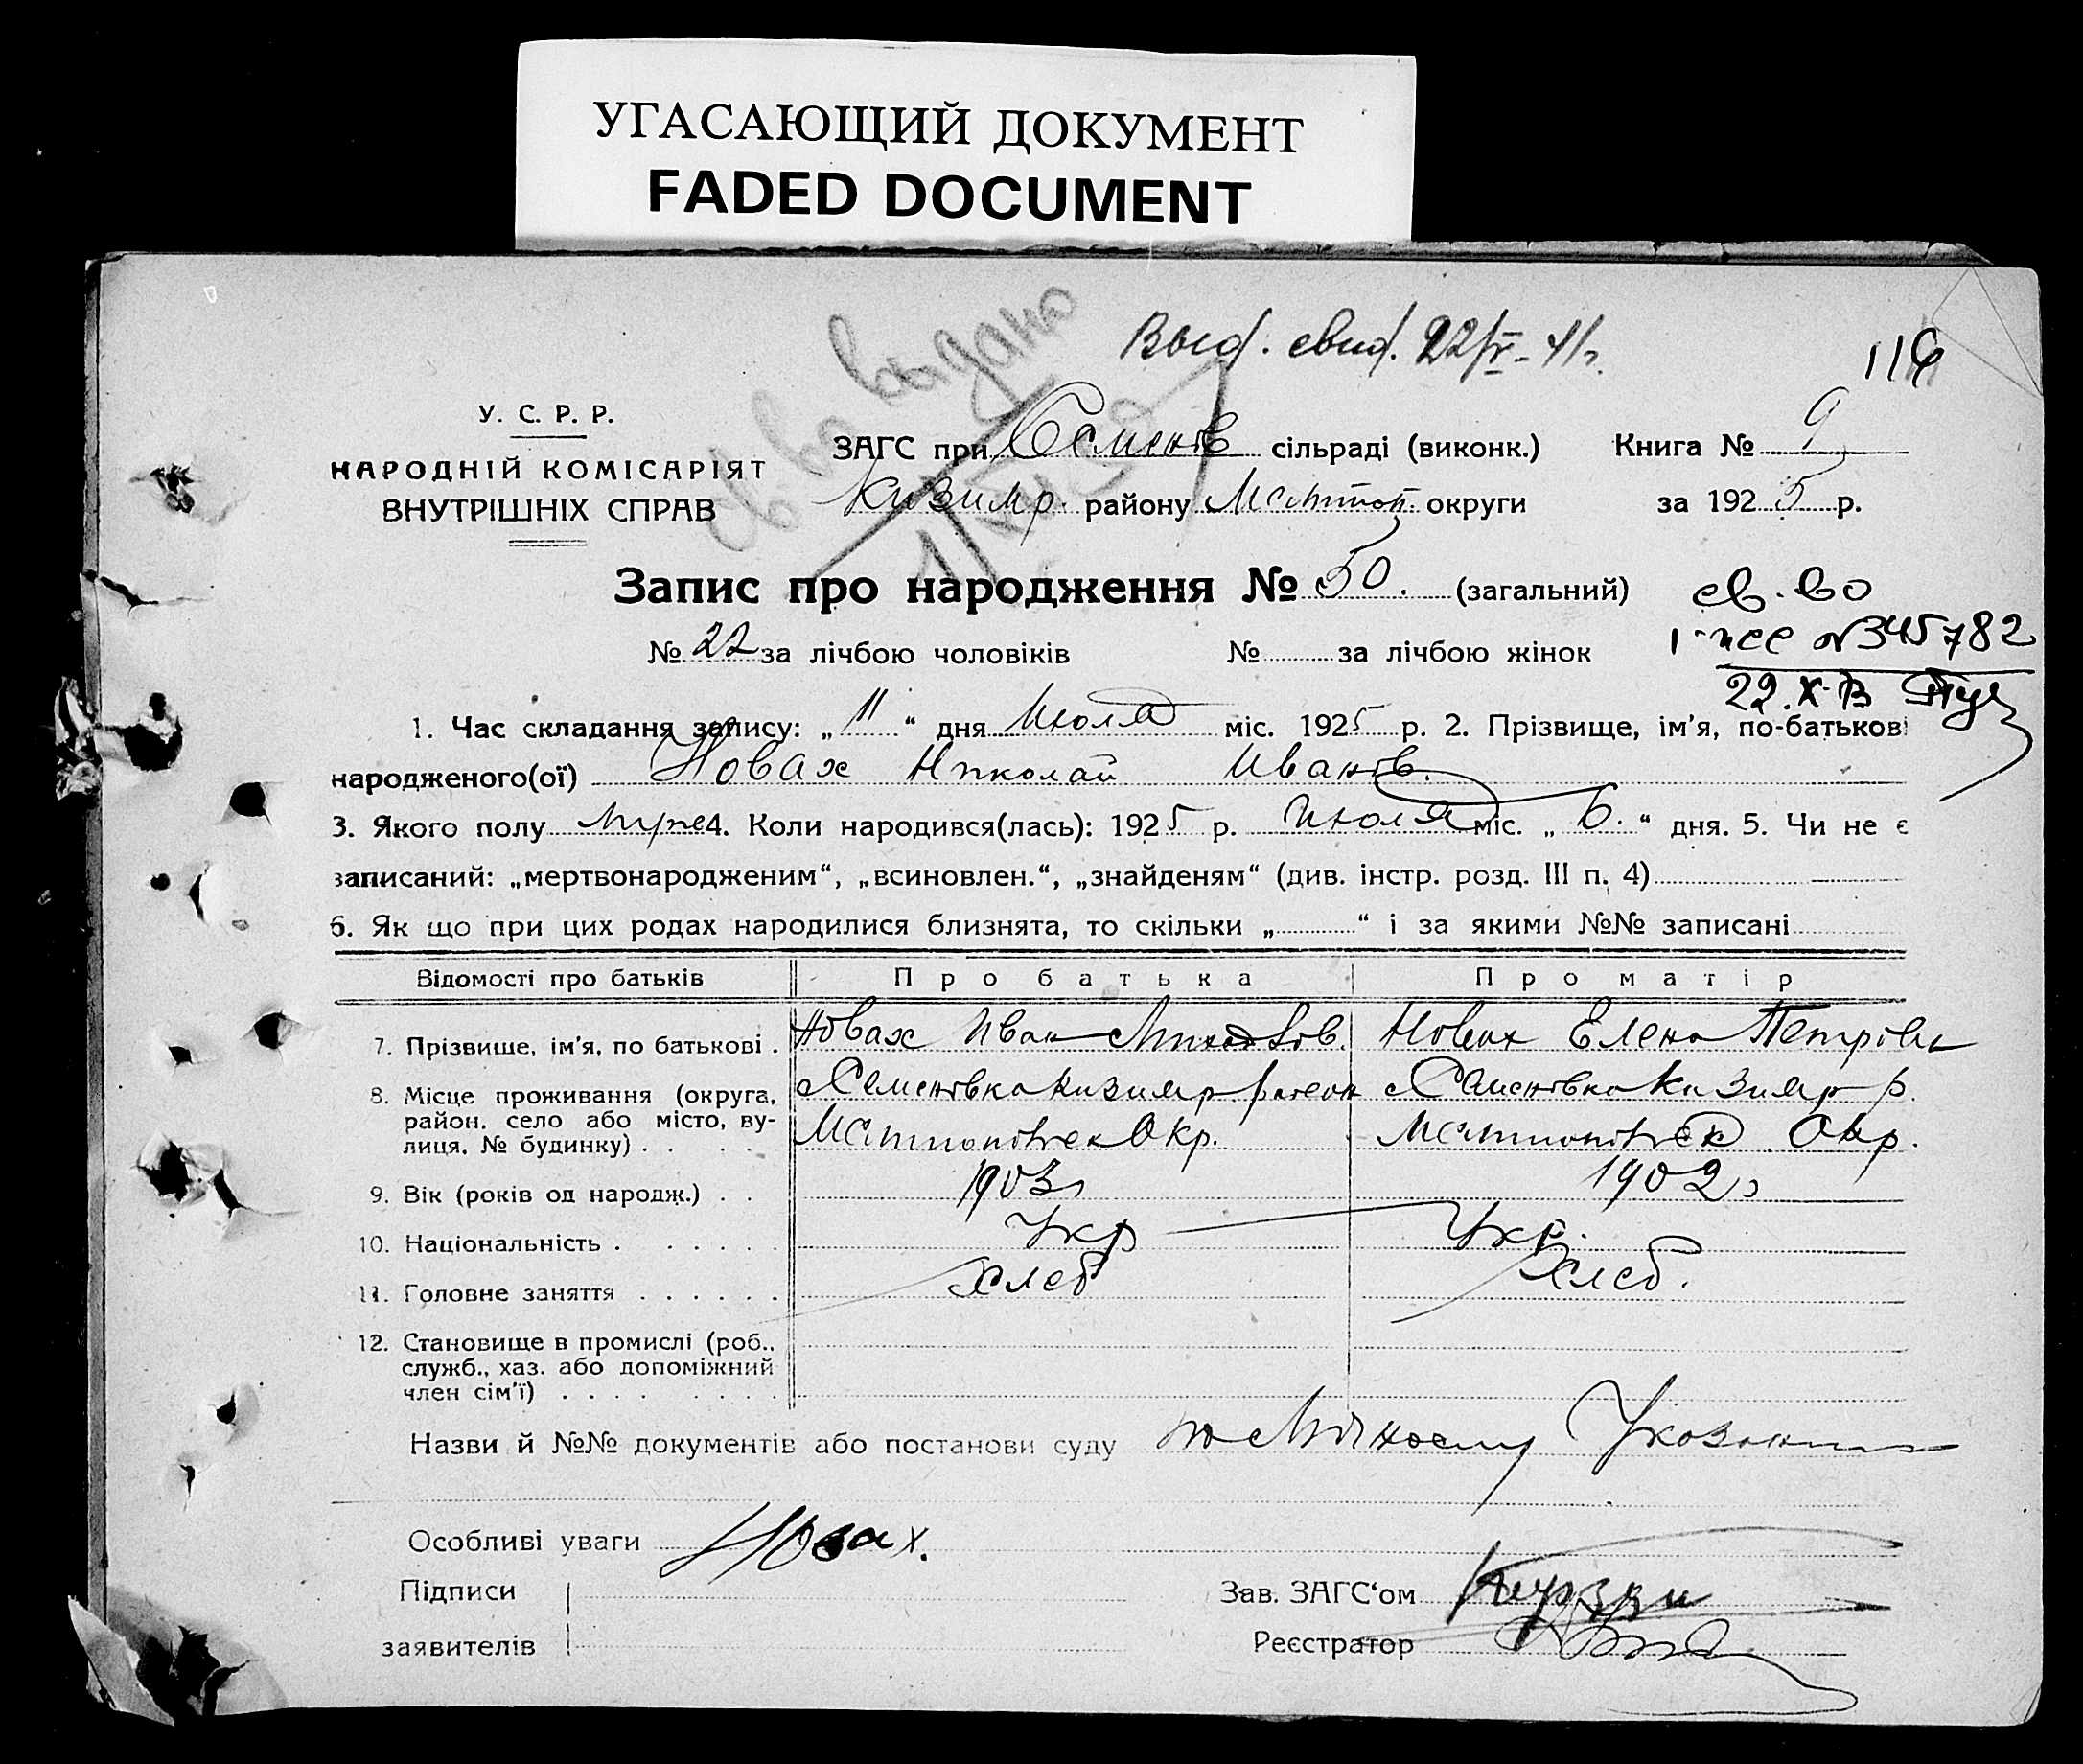 УГАСАЮЩИЙ ДОКУМЕНТ
FADED DOCUMENT
Выд. свид. 22/IV-41г.
116
св во выдано
У. С. Р. Р.
НАРОДНІЙ КОМІСАРІЯТ
ВНУТРІШНІХ СПРАВ
ЗАГС при Семенів сільраді (виконк.) Книга № 9
Кизияр. району Мелітоп. округи за 1925 р.
Запис про народження № 50. (загальний)
св. во
№ 345782
№ 22 за лічбою чоловіків № за лічбою жінок
1. Час складання запису: „11“ дня Июля міс. 1925 р. 2. Прізвище, ім'я, по-батькові
народженого(ої) Новах Николай Иванів.
3. Якого полу муже 4. Коли народився(лась): 1925 р. Июля міс. „6.“ дня. 5. Чи не є
записаний: „мертвонародженим“, „всиновлен.“, „знайденям“ (див. інстр. розд. III п. 4)
6. Як що при цих родах народилися близнята, то скільки „ “ і за якими №№ записані
Відомості про батьків Про батька Про матір
7. Прізвище, ім'я, по батькові . Новах Иван Новах Елена Петрівн
8. Місце проживання (округа, район, село або місто, вулиця, № будинку) . . Семенівка Кизияр район Семенівка Кизияр р.
Мелитопівск Окр. Мелитопівск Окр.
9. Вік (років од народж.) . . 1903 1902
10. Національність . . . . . . Укр Укр.
11. Головне заняття . . . . . . Хлеб Хлеб.
12. Становище в промислі (роб., служб., хаз. або допоміжний член сім'ї) . . . . . . . .
Назви й №№ документів або постанови суду по Указанию
Особливі уваги Новах.
Підписи
заявителів
Зав. ЗАГС'ом
Реєстратор